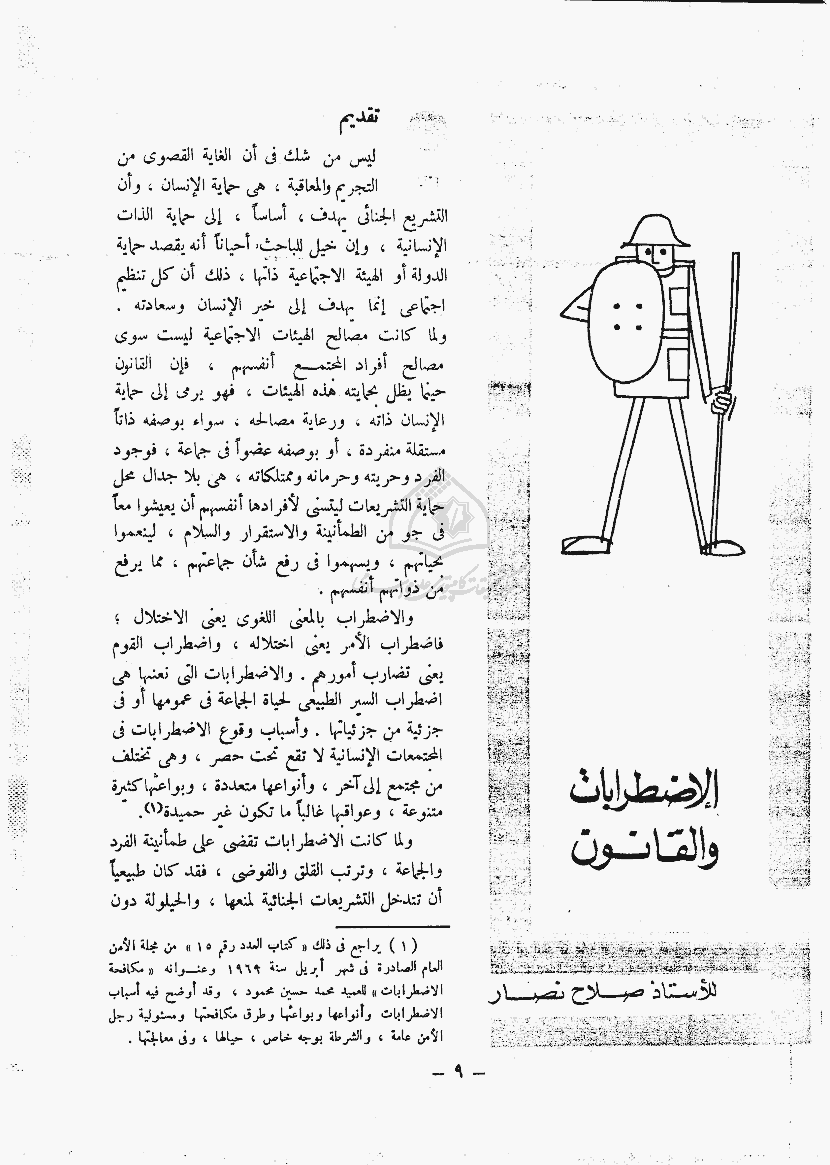 الاضطرابات
والقانون
للأستاذ صلاح نصار
تقديم
ليس من شك فى أن الغاية القصوى من
التجريم والمعاقبة ، هى حماية الإنسان ، وأن
التشريع الجنائى يهدف ، أساساً ، إلى حماية الذات
الإنسانية ، وإن خيل للباحث أحياناً أنه يقصد حماية
الدولة أو الهيئة الاجتماعية ذاتها ، ذلك أن كل تنظيم
اجتماعى إنما يهدف إلى خير الإنسان وسعادته .
ولما كانت مصالح الهيئات الاجتماعية ليست سوى
مصالح أفراد المجتمع أنفسهم ، فإن القانون
حينما يظل بحمايته هذه الهيئات ، فهو يرمى إلى حماية
الإنسان ذاته ، ورعاية مصالحه ، سواء بوصفه ذاتاً
مستقلة منفردة ، أو بوصفه عضواً فى جماعة ، فوجود
الفرد وحريته وحرماته وممتلكاته ، هى بلا جدال محل
حماية التشريعات ليتسنى لأفرادها أنفسهم أن يعيشوا معاً
فى جو من الطمأنينة والاستقرار والسلام ، لينعموا
بحياتهم ، ويسهموا فى رفع شأن جماعتهم ، مما يرفع
من ذواتهم أنفسهم .
والاضطراب بالمعنى اللغوى يعنى الاختلال ؛
فاضطراب الأمر يعنى اختلاله ، واضطراب القوم
يعنى تضارب أمورهم . والاضطرابات التى نعنيها هى
اضطراب السير الطبيعى لحياة الجماعة فى عمومها أو فى
جزئية من جزئياتها . وأسباب وقوع الاضطرابات فى
المجتمعات الإنسانية لا تقع تحت حصر ، وهى تختلف
من مجتمع إلى آخر ، وأنواعها متعددة ، وبواعثها كثيرة
متنوعة ، وعواقبها غالباً ما تكون غير حميدة(١).
ولما كانت الاضطرابات تقضى على طمأنينة الفرد
والجماعة ، وترتب القلق والفوضى ، فقد كان طبيعياً
أن تتدخل التشريعات الجنائية لمنعها ، والحيلولة دون
(١) يراجع فى ذلك « كتاب العدد رقم ١٥ » من مجلة الأمن
العام الصادرة فى شهر أبريل سنة ١٩٦٩ وعنوانه « مكافحة
الاضطرابات » للعميد محمد حسين محمود ، وقد أوضح فيه أسباب
الاضطرابات وأنواعها وبواعثها وطرق مكافحتها ومسئولية رجل
الأمن عامة ، والشرطة بوجه خاص ، حيالها ، وفى معالجتها .
– ٩ –